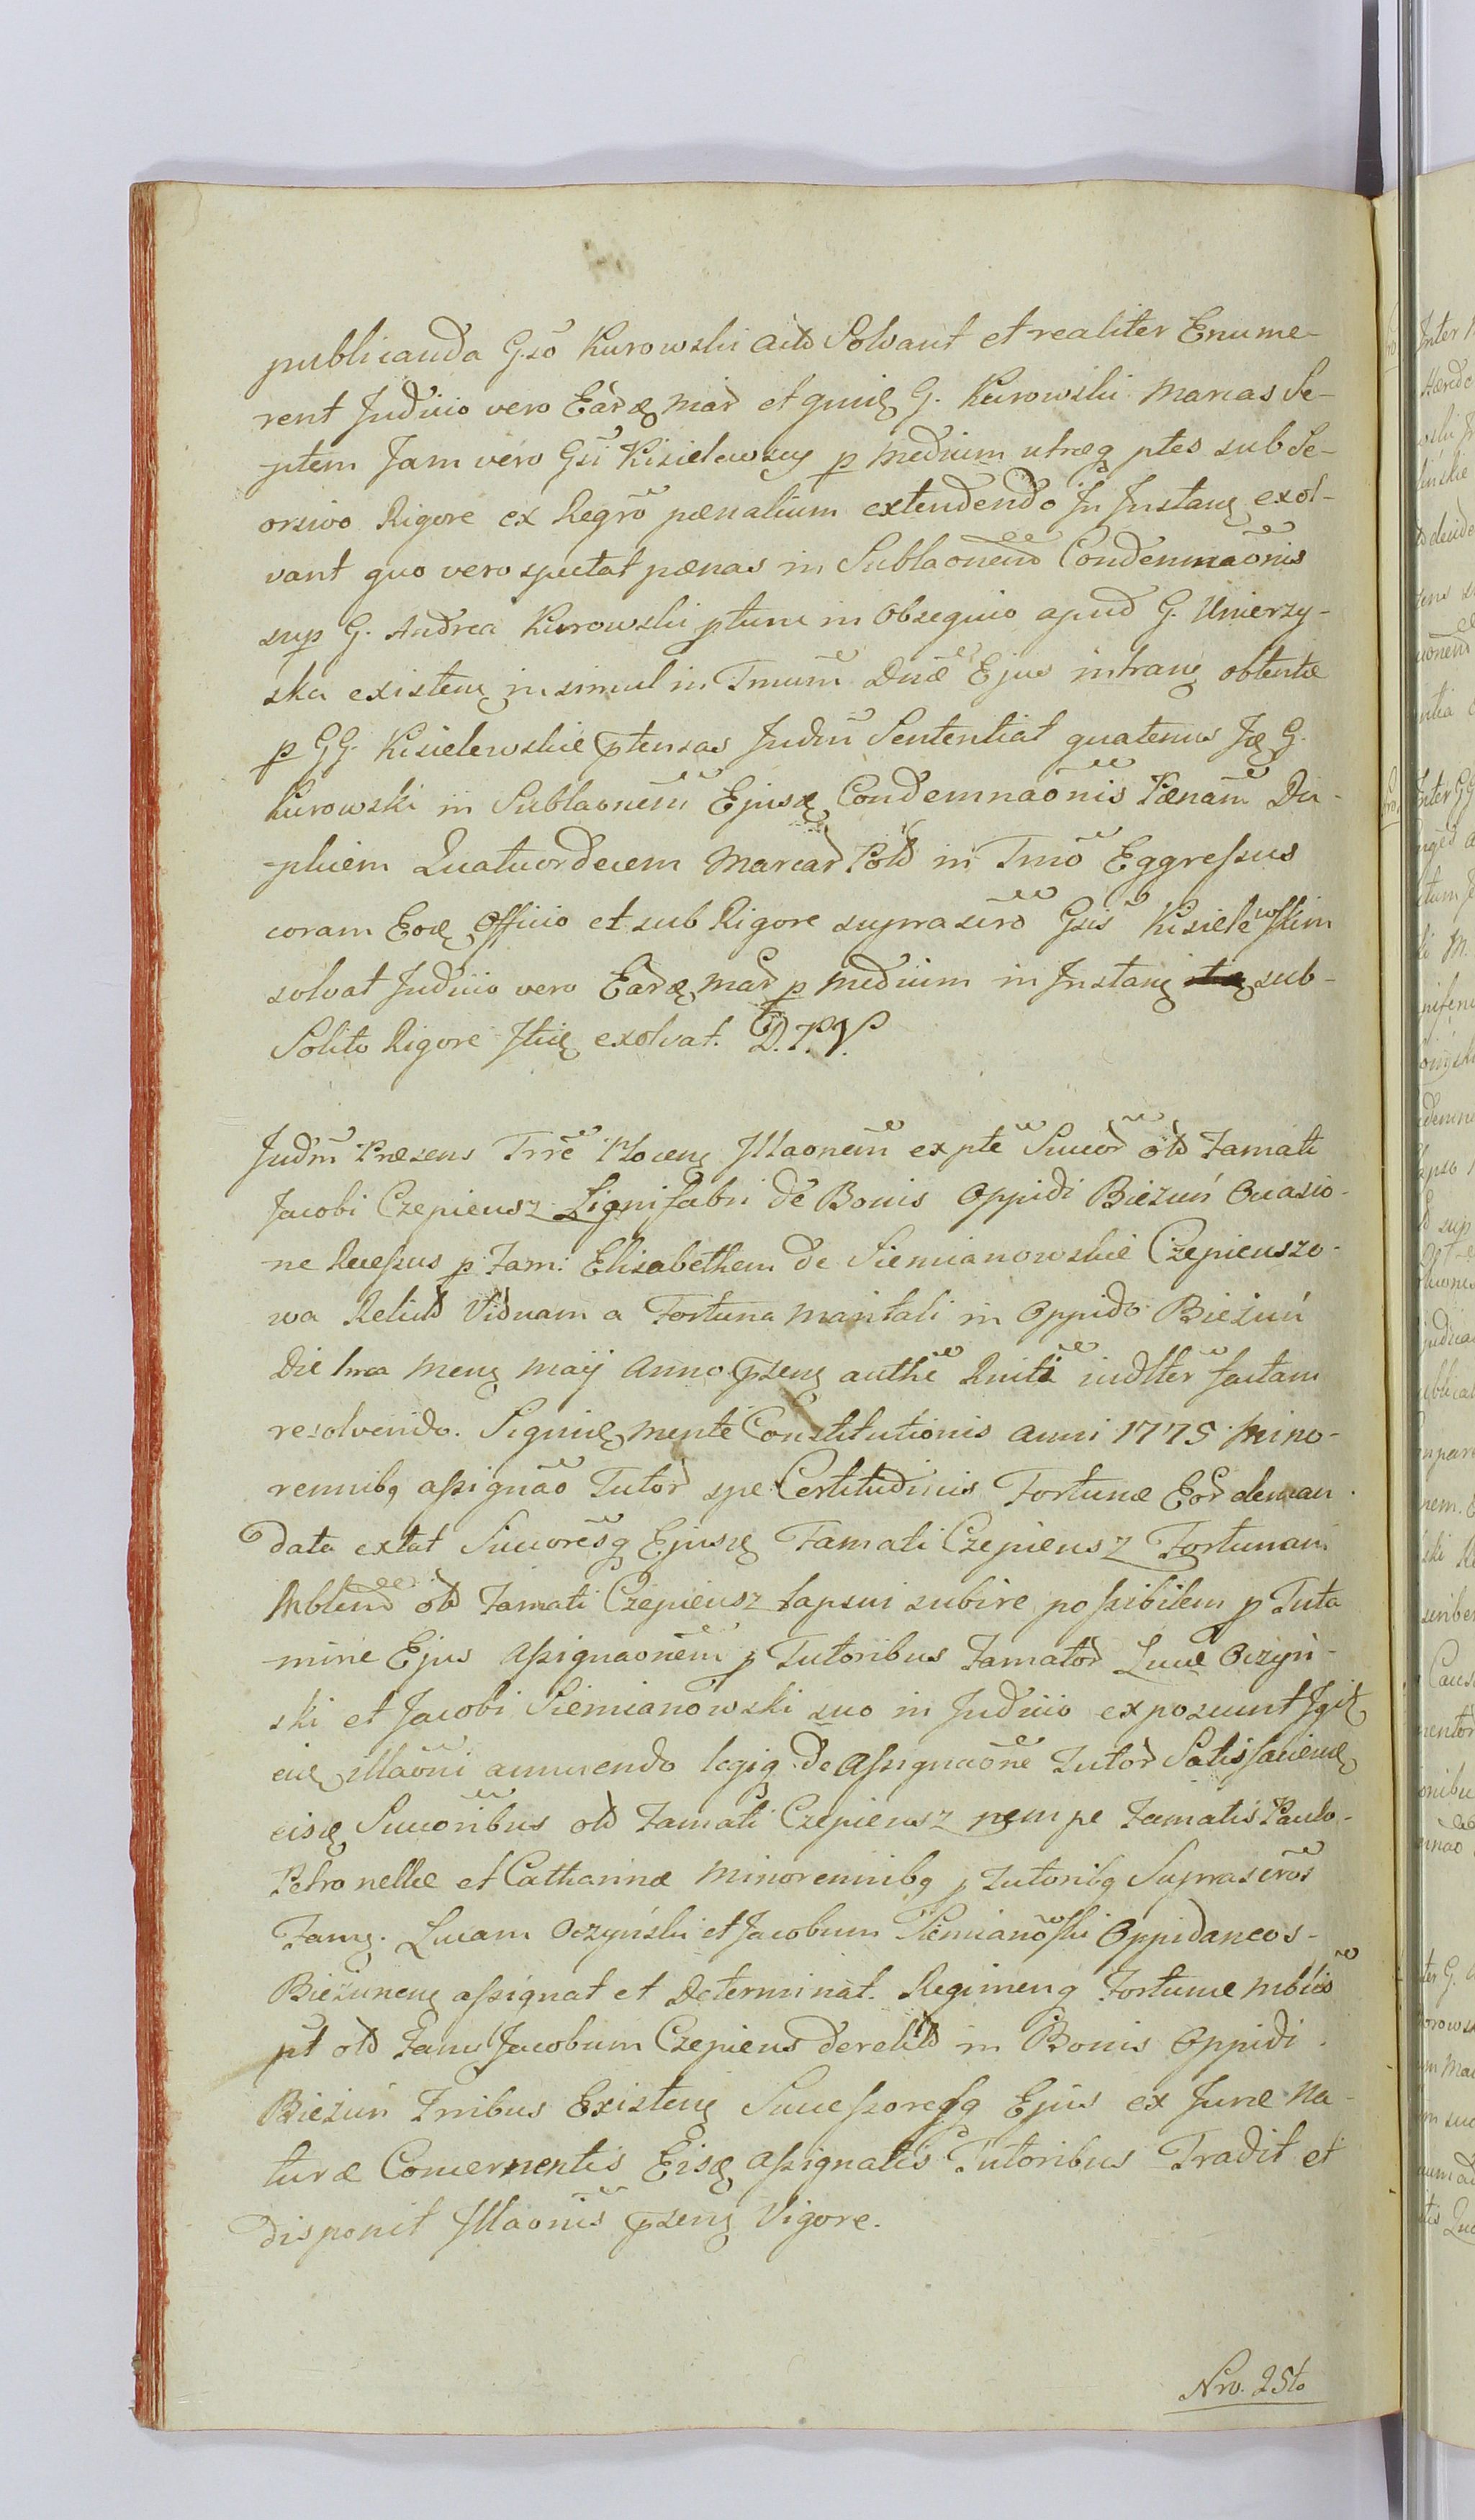 publicanda Gso Kurowski actt Solvant et realiter Enume-
rent Judicio vero Eard mar et quil G. Kurowski Marcas Se-
ptem Jam vero Gsi Kisielewscy p medium utræq ptes sub Se-
orsivo Rigore ex Regro pœnalium extendendo In Instang exol-
vant quo vero spectat pœnas in Sublaonem Condemnaonis
sup G. Andrea Kurowski ptum in Obsequio apud G. Umierzy-
ska existens in simul in Tmum Duæ Ejus intrang obtentæ
p GG. Kisielewskie ptensas Judm Sententiat quatenus G.
Kurowski in Sublaonem Ejusd Condemnaonis Pænam Du-
plicem Quatuordecem Marcar Pol in Tmo Eggressus
coram Eod Officio et sub Rigore suprascro Gsis Kisielewskim
solvat Judicio vero Eard mar p medium in Instang sub-
Solito Rigore exolvat. D.P.V.
Judm Præsens Trre Ploceng Illaonem ex pte Succor ott Famati
Jacobi Czepieusz Lignifabri de Bonis Oppidi Biezuń Occasio-
ne Recessus p Fam: Elisabethem de Siemianowskie Czepieuszo-
wa Relict Viduam a Fortuna maritali in Oppido Biezuń
Die 1ma Mens Maij Anno pseng authe Rniti iudlter factam
resolvendo. Signul mente Constitutionis anni 1775 Mino-
rennibq assignao Tutor spe Certitudinis Fortunæ Eor deman-
data extat Succoresq Ejusd Famati Czepieusz Fortunam
Mblem ott Famati Czepieusz lapsui subire possibilem p Tuta
mine Ejus Assignaonem p Tutoribus Famator Lucæ Oczyń-
ski et Jacobi Siemianowski suo in Judicio exposcunt Igit
eid illaoni annuendo legiq de Assignaone Tutor Satisfaciend
eisd Succoribus ott Famati Czepieusz nempe Famatis Paulo-
Petronellæ et Catharinæ Minorennibq p Tutoribq Suprascros
Fams. Lucam Oczyński et Jacobum Siemianoski Oppidaneos-
Biezuneng assignat et Determinat. Regimenq Fortunæ mblis
pt ott Fam Jacobum Czepieus derelitt in Bonis Oppidi
Biezuń Trribus Existeng Successoresq Ejus ex Jure Na-
turæ Concernentis Eisd assignatis Tutoribus Tradit et
disponit Illaonis pseng Vigore.
Nro. 25to